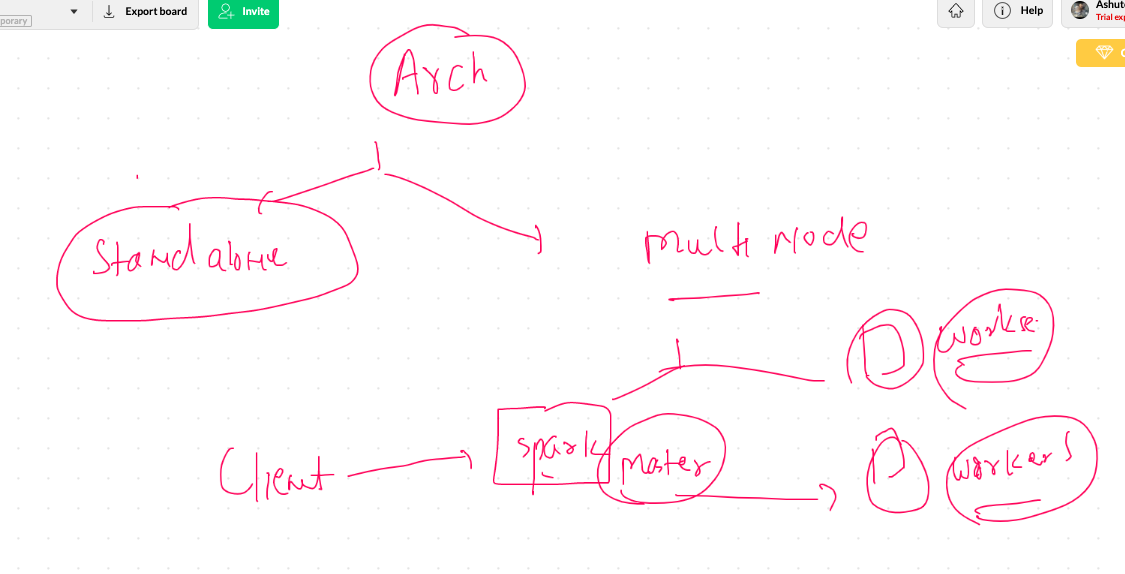 porary
Export board
Invite
Help
Ashut
Trial exp
Arch
Standalone
multi node
worke
Client
spark
master
workers